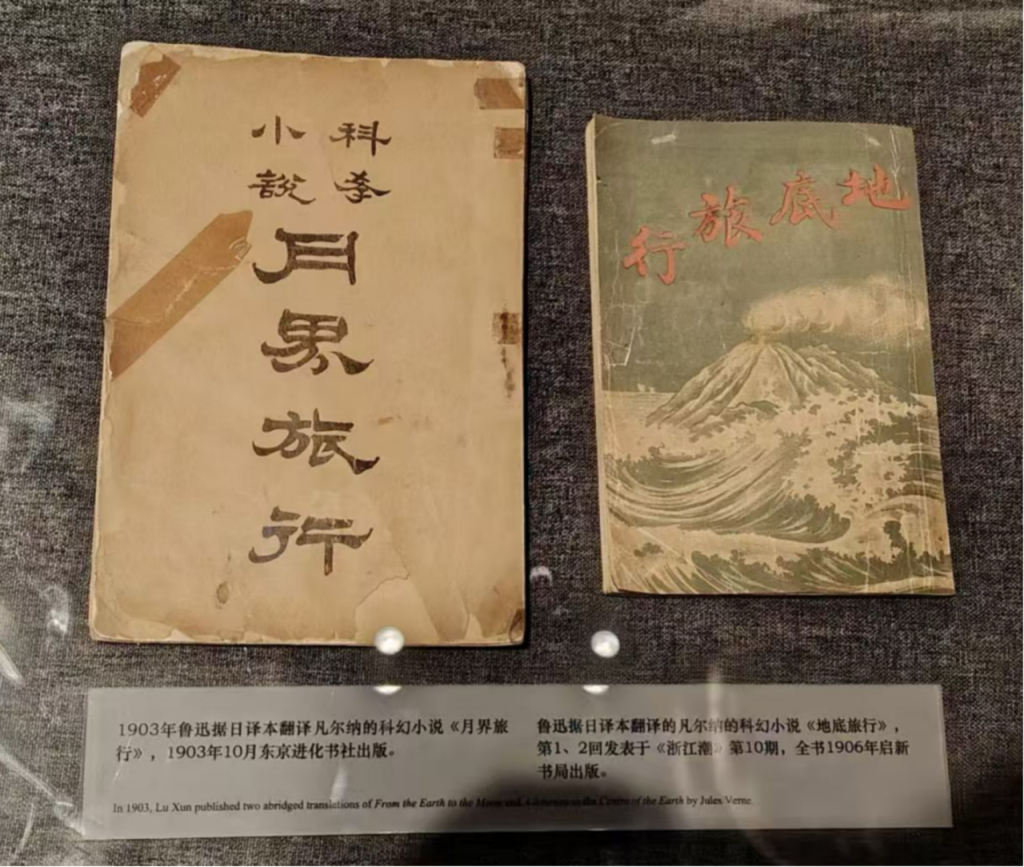 科斈
小說
月界旅行
地底旅行
1903年鲁迅据日译本翻译凡尔纳的科幻小说《月界旅
行》，1903年10月东京进化书社出版。
鲁迅据日译本翻译的凡尔纳的科幻小说《地底旅行》，
第1、2回发表于《浙江潮》第10期，全书1906年启新
书局出版。
In 1903, Lu Xun published two abridged translations of From the Earth to the Moon and A Journey to the Centre of the Earth by Jules Verne.